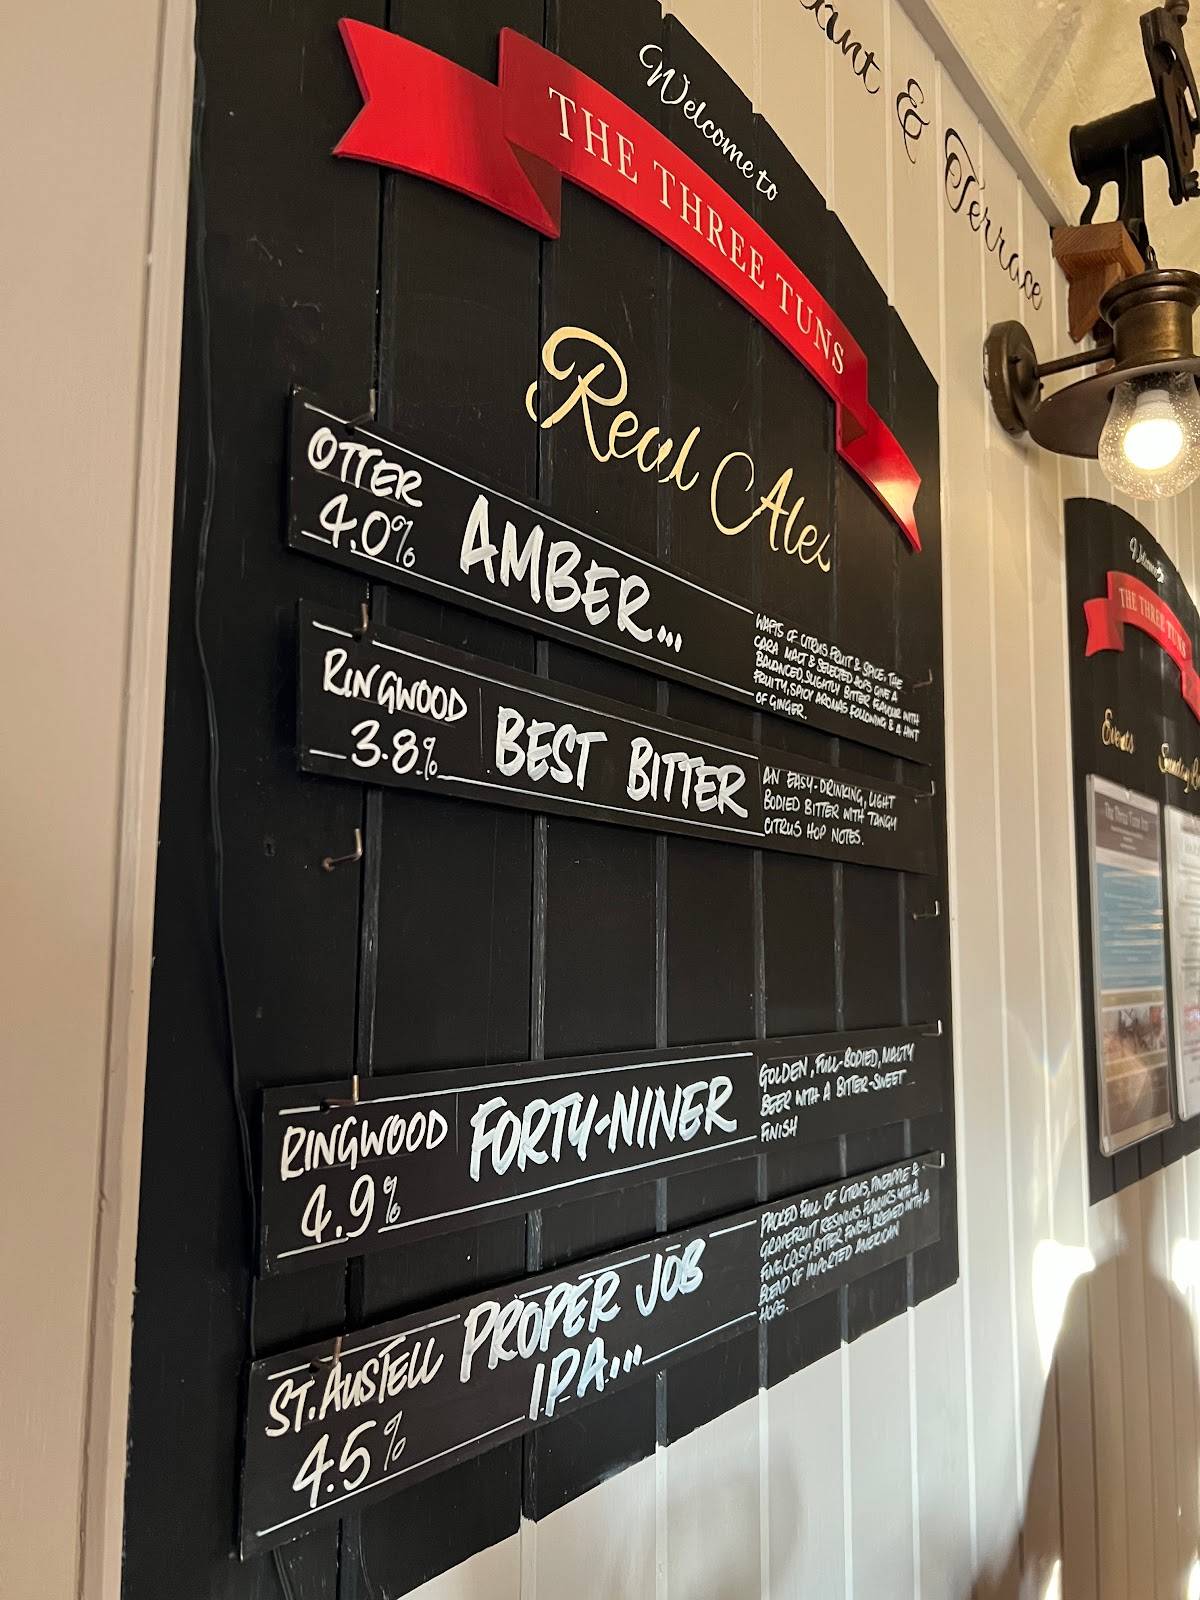 Welcome to
THE THREE TUNS
Real Ales
OTTER
4.0%
AMBER...
WAFTS OF CITRUS FRUIT & SPICE. THE
CARA MALT & SELECTED HOPS GIVE A
BALANCED, SLIGHTLY BITTER FLAVOUR WITH
FRUITY, SPICY AROMAS FOLLOWING & A HINT
OF GINGER.
RINGWOOD
3.8%
BEST BITTER
AN EASY-DRINKING, LIGHT
BODIED BITTER WITH TANGY
CITRUS HOP NOTES.
RINGWOOD
4.9%
FORTY-NINER
GOLDEN, FULL-BODIED, MALTY
BEER WITH A BITTER-SWEET
FINISH
ST. AUSTELL
4.5%
PROPER JOB
IPA...
PACKED FULL OF CITRUS, PINEAPPLE &
GRAPEFRUIT RESINOUS FLAVOURS WITH A
FINE, CRISP, BITTER FINISH, BREWED WITH A
BLEND OF IMPORTED AMERICAN
HOPS.
& Terrace
Welcome to
THE THREE TUNS
Events
The Three Tuns Inn